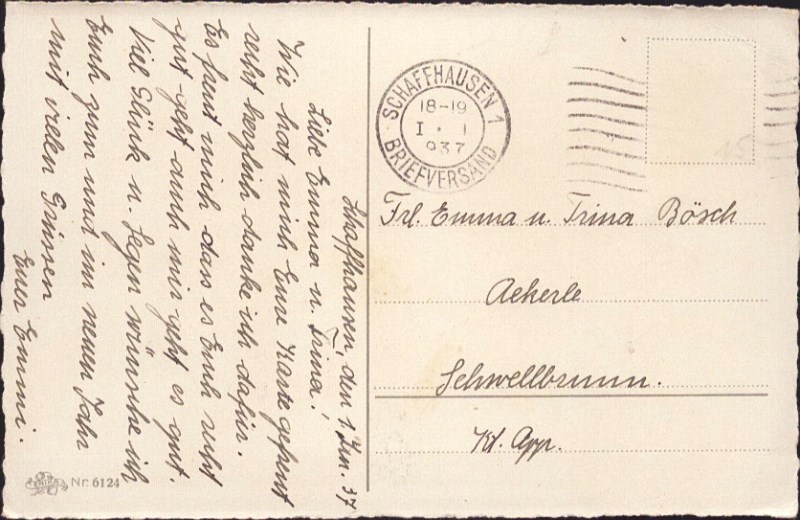 Schaffhausen, den 1. Jan. 37
Liebe Emma u. Trina!
Wie hat mich Eure Karte gefreut
recht herzlich danke ich dafür.
Es freut mich dass es Euch recht
gut geht auch mir geht es gut.
Viel Glück u. Segen wünsche ich
Euch zum und im neuen Jahr
mit vielen Grüssen
Euer Emmi.
Nr. 6124
SCHAFFHAUSEN 1
18-19
I · 1
937
BRIEFVERSAND
15
Frl. Emma u. Trina Bösch
Aekerle
Schwellbrunn.
Kt. App.